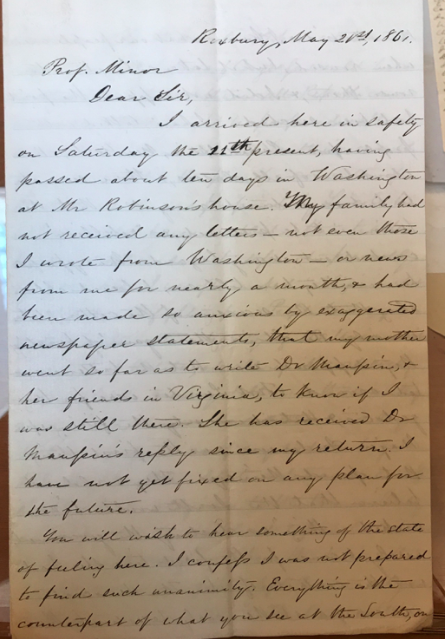 Roxbury, May 21st, 1861.
Prof. Minor
Dear Sir,
I arrived here in safety
on Saturday the 11th present, having
passed about ten days in Washington
at Mr Robinson's house. My family had
not received any letters – not even those
I wrote from Washington – or news
from me for nearly a month, & had
been made so anxious by exaggerated
newspaper statements, that my mother
went so far as to write Dr Maupin, &
her friends in Virginia, to know if I
was still there. She has received Dr
Maupin's reply since my return. I
have not yet fixed on any plan for
the future.
You will wish to hear something of the state
of feeling here. I confess I was not prepared
to find such unanimity. Everything is the
counterpart of what you see at the South, on